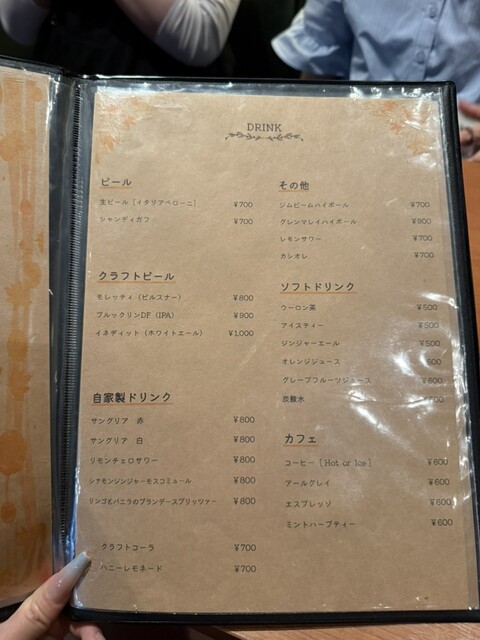 DRINK
ビール
生ビール [イタリアペローニ] ¥700
シャンディガフ ¥700
クラフトビール
モレッティ (ピルスナー) ¥800
ブルックリンDF (IPA) ¥900
イネディット (ホワイトエール) ¥1,000
自家製ドリンク
サングリア 赤 ¥800
サングリア 白 ¥800
リモンチェロサワー ¥800
シナモンジンジャーモスコミュール ¥800
リンゴとバニラのブランデースプリッツァー ¥800
クラフトコーラ ¥700
ハニーレモネード ¥700
その他
ジムビームハイボール ¥700
グレンマレイハイボール ¥900
レモンサワー ¥700
カシオレ ¥700
ソフトドリンク
ウーロン茶 ¥500
アイスティー ¥500
ジンジャーエール ¥500
オレンジジュース 600
グレープフルーツジュース ¥600
炭酸水
カフェ
コーヒー [Hot or Ice] ¥600
アールグレイ ¥600
エスプレッソ ¥600
ミントハーブティー ¥600